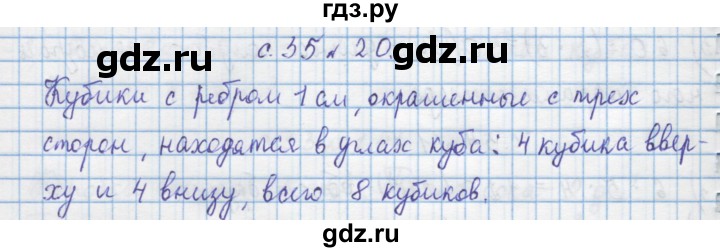 гдз.ру
с. 35 № 20.
gdz.ru gdz.ru
Кубики с ребром 1 см, окрашенные с трех
сторон, находятся в углах куба: 4 кубика ввер-
ху и 4 внизу, всего 8 кубиков.
gdz.ru gdz.ru